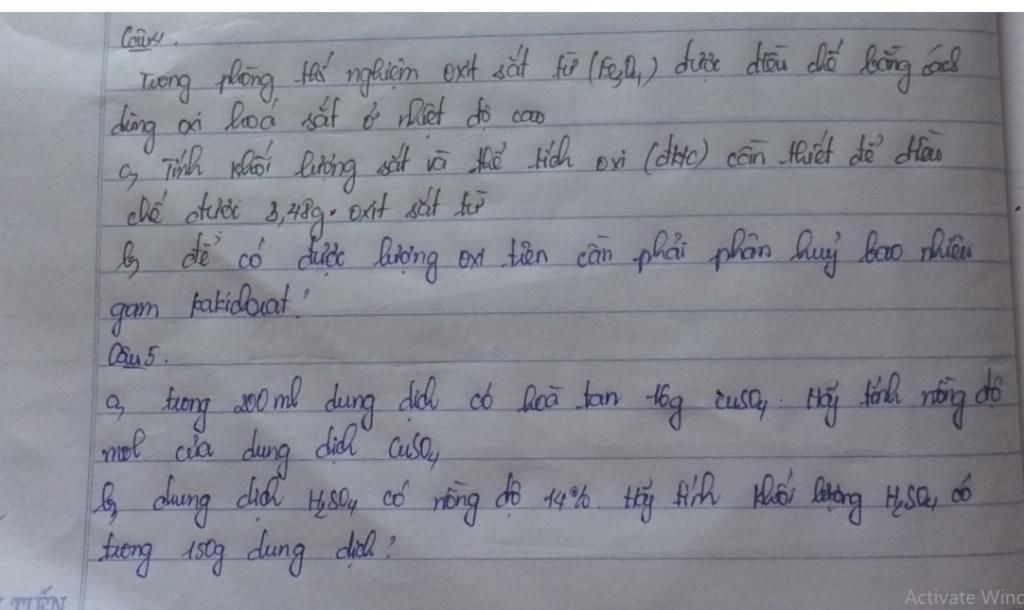 Câu 4.
Trong phòng thí nghiệm oxit sắt từ (Fe3O4) được điều chế bằng cách
dùng oxi hoá sắt ở nhiệt độ cao
a, Tính khối lượng sắt và thể tích oxi (đktc) cần thiết để điều
chế được 3,48g. oxit sắt từ
b, để có được lượng oxi trên cần phải phân huỷ bao nhiêu
gam kaliclorat?
Câu 5.
a, trong 200ml dung dịch có hoà tan 16g CuSO4. Hãy tính nồng độ
mol của dung dịch CuSO4
b, dung dịch H2SO4 có nồng độ 14%. Hãy tính khối lượng H2SO4 có
trong 150g dung dịch?
TIẾN
Activate Wind